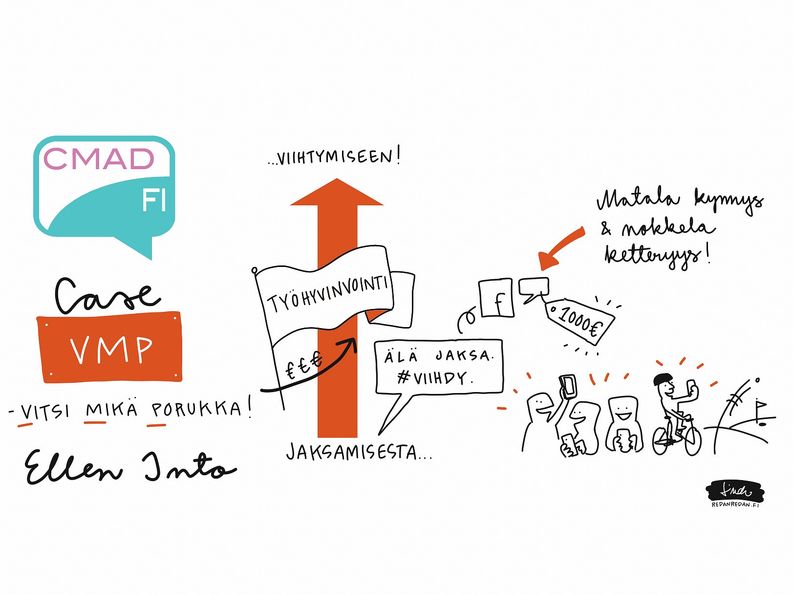 CMAD
FI
Case
VMP
- VITSI MIKÄ PORUKKA!
Ellen Into
...VIIHTYMISEEN!
TYÖHYVINVOINTI
€€€
JAKSAMISESTA...
ÄLÄ JAKSA.
#VIIHDY.
f
1000€
Matala kynnys
& nokkela
ketteryys!
REDANREDAN.FI